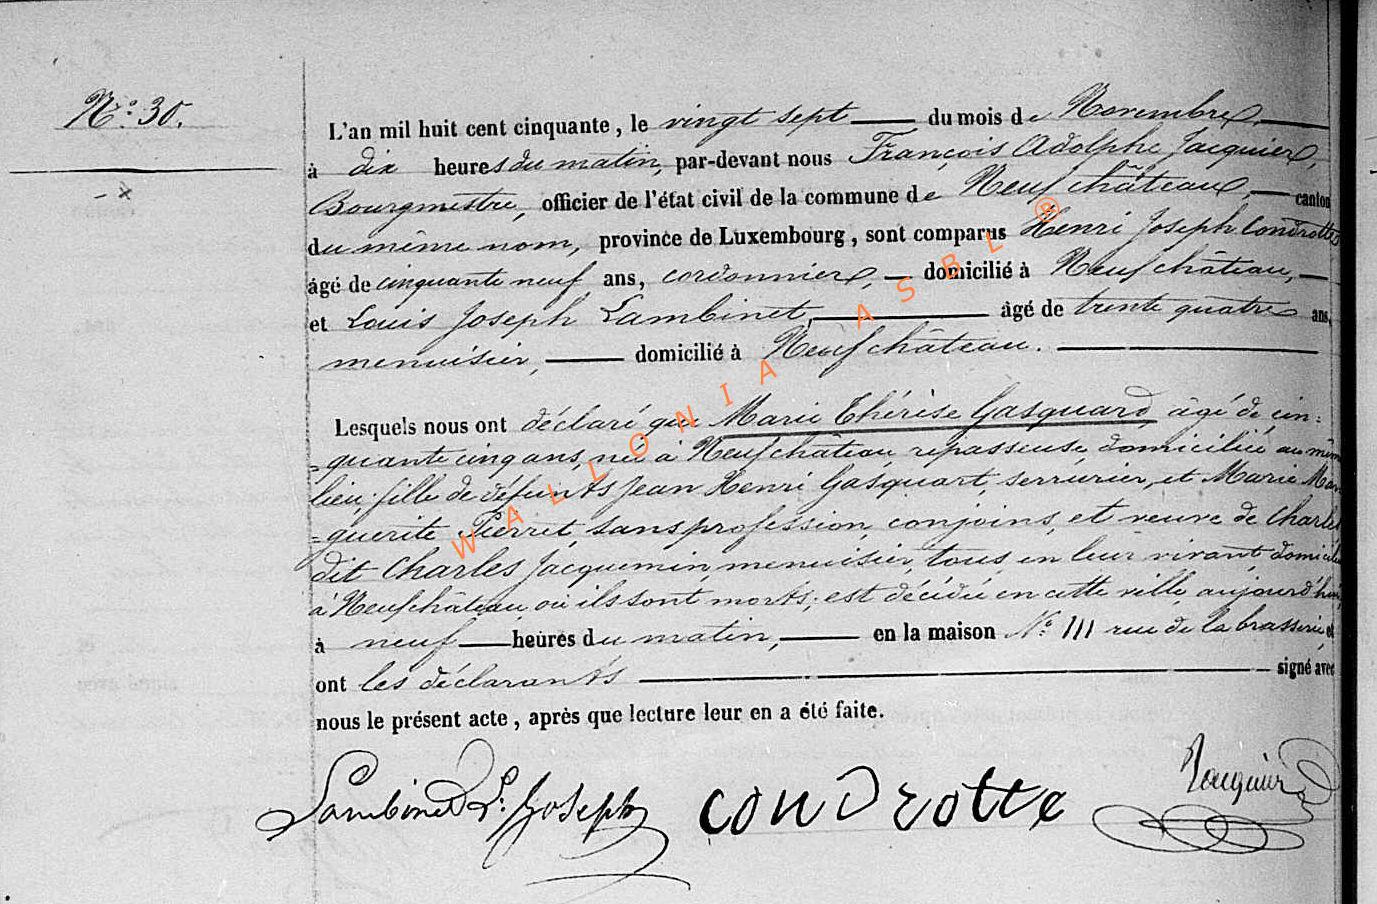 N.° 30.
L'an mil huit cent cinquante, le vingt sept du mois de Novembre
à dix heures du matin, par-devant nous François Adolphe Jacquier,
Bourgmestre, officier de l'état civil de la commune de Neufchâteau, canton
du même nom, province de Luxembourg, sont comparus Henri Joseph Condrotte
âgé de cinquante neuf ans, cordonnier, domicilié à Neufchâteau,
et Louis Joseph Lambinet, âgé de trente quatre ans,
menuisier, domicilié à Neufchâteau.
Lesquels nous ont déclaré que Marie Thérèse Gasquard, âgé de cin=
=quante cinq ans, née à Neufchâteau, repasseuse, domiciliée au même
lieu, fille de défunts Jean Henri Gasquart, serrurier, et Marie Mar
=guerite Pierret, sans profession, conjoins, et veuve de Charles
dit Charles Jacquemin, menuisier, tous en leur vivant, domiciliés
à Neufchâteau, où ils sont morts; est décédée en cette ville, aujourd'hui
à neuf heures du matin, en la maison N.° 111 rue de la brasserie, et
ont les déclarants signé avec
nous le présent acte, après que lecture leur en a été faite.
Lambinet L. Joseph condrotte Jacquier
WALLONIA ASBL ®